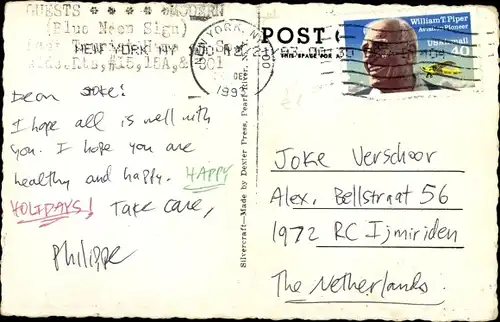 GUESTS * * * * * MODERN
(Blue Neon Sign)
NEW YORK NY 100
W YORK, N.Y.
DEC
POST
THIS SPACE FOR
William T. Piper
Aviation Pioneer
USAirmail
40
Dear Joke!
I hope all is well with
you. I hope you are
healthy and happy. HAPPY
HOLIDAYS! Take care,
Philippe
Silvercraft—Made by Dexter Press, Pearl River, N.Y.
Joke Verschoor
Alex. Bellstraat 56
1972 RC Ijmiriden
The Netherlands